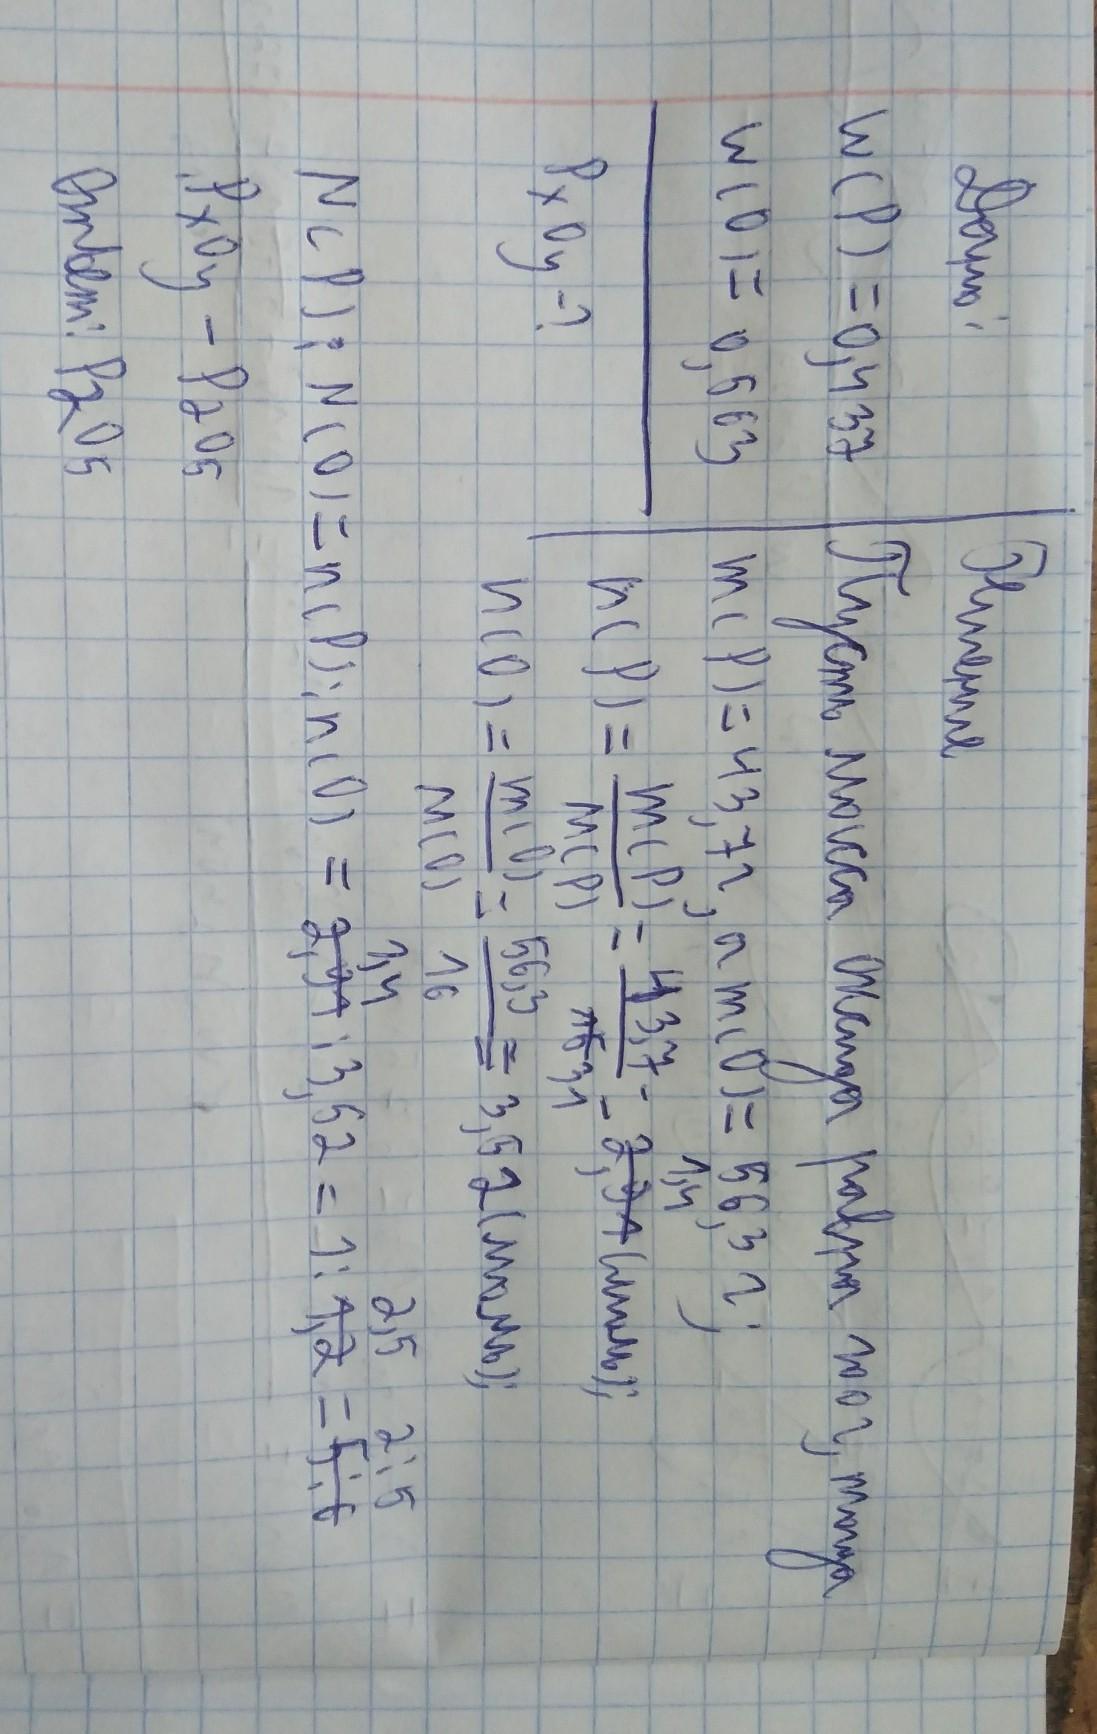 Дано:
w(P) = 0,437
w(O) = 0,563
PxOy - ?
Решение
Пусть масса оксида равна 100г, тогда
m(P) = 43,7г, а m(O) = 56,3г;
n(P) = m(P)/M(P) = 43,7/31 = 1,4 (моль);
n(O) = m(O)/M(O) = 56,3/16 = 3,52 (моль);
N(P) : N(O) = n(P) : n(O) = 1,4 : 3,52 = 1 : 2,5 = 2:5
PxOy - P2O5
Ответ: P2O5